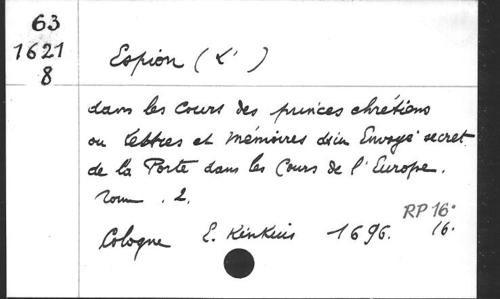 63
1621
8
Espion (L')
dans les Cours des princes chrétiens
ou lettres et Mémoires d'un Envoyé secret
de la Porte dans les Cours de l'Europe.
tom. 2.
RP 16°
Cologne E. Kinkius 1696. 16.